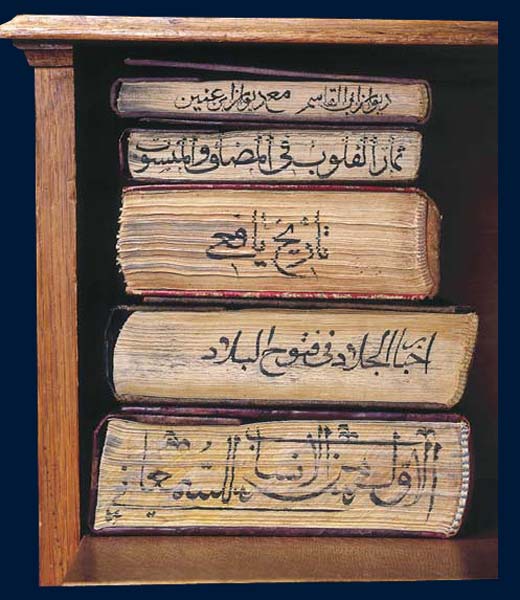 ديوان ابي القاسم مع ديوان ابن عنين
ثمار القلوب في المضاف والمنسوب
تاريخ يافعي
اخبار الجلاد في فتوح البلاد
الاول من الانساب للسمعاني